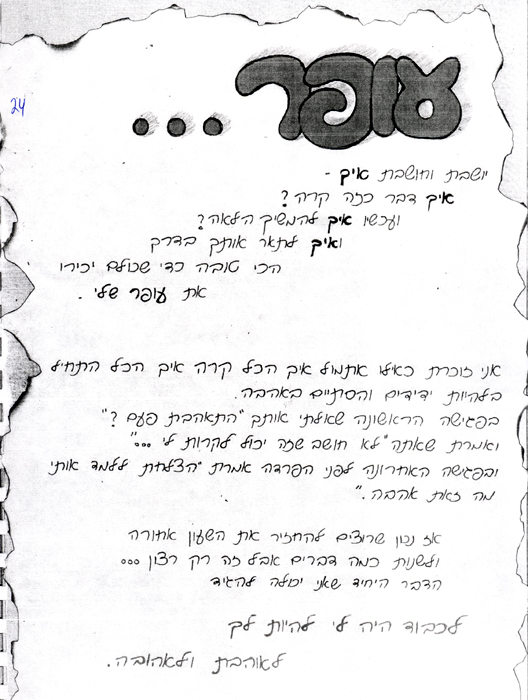 24
עופר...
יושבת וחושבת איך -
איך דבר כזה קרה?
ועכשיו איך להמשיך הלאה?
ואיך לתאר אותך בדרך
הכי טובה כדי שכולם יכירו
את עופר שלי.
אני זוכרת כאילו אתמול איך הכל קרה איך הכל התחיל
בלהיות ידידים והסתיים באהבה.
בפגישה הראשונה שאלתי אותך "התאהבת פעם?"
ואמרת שאתה "לא חושב שזה יכול לקרות לי..."
ובפגישה האחרונה לפני הפרדה אמרת "הצלחת ללמד אותי
מה זאת אהבה."
אז נכון שרוצים להחזיר את השעון אחורה
ולשנות כמה דברים אבל זה רק רצון...
הדבר היחיד שאני יכולה להגיד
לכבוד היה לי להיות לך
לאוהבת ולאהובה.